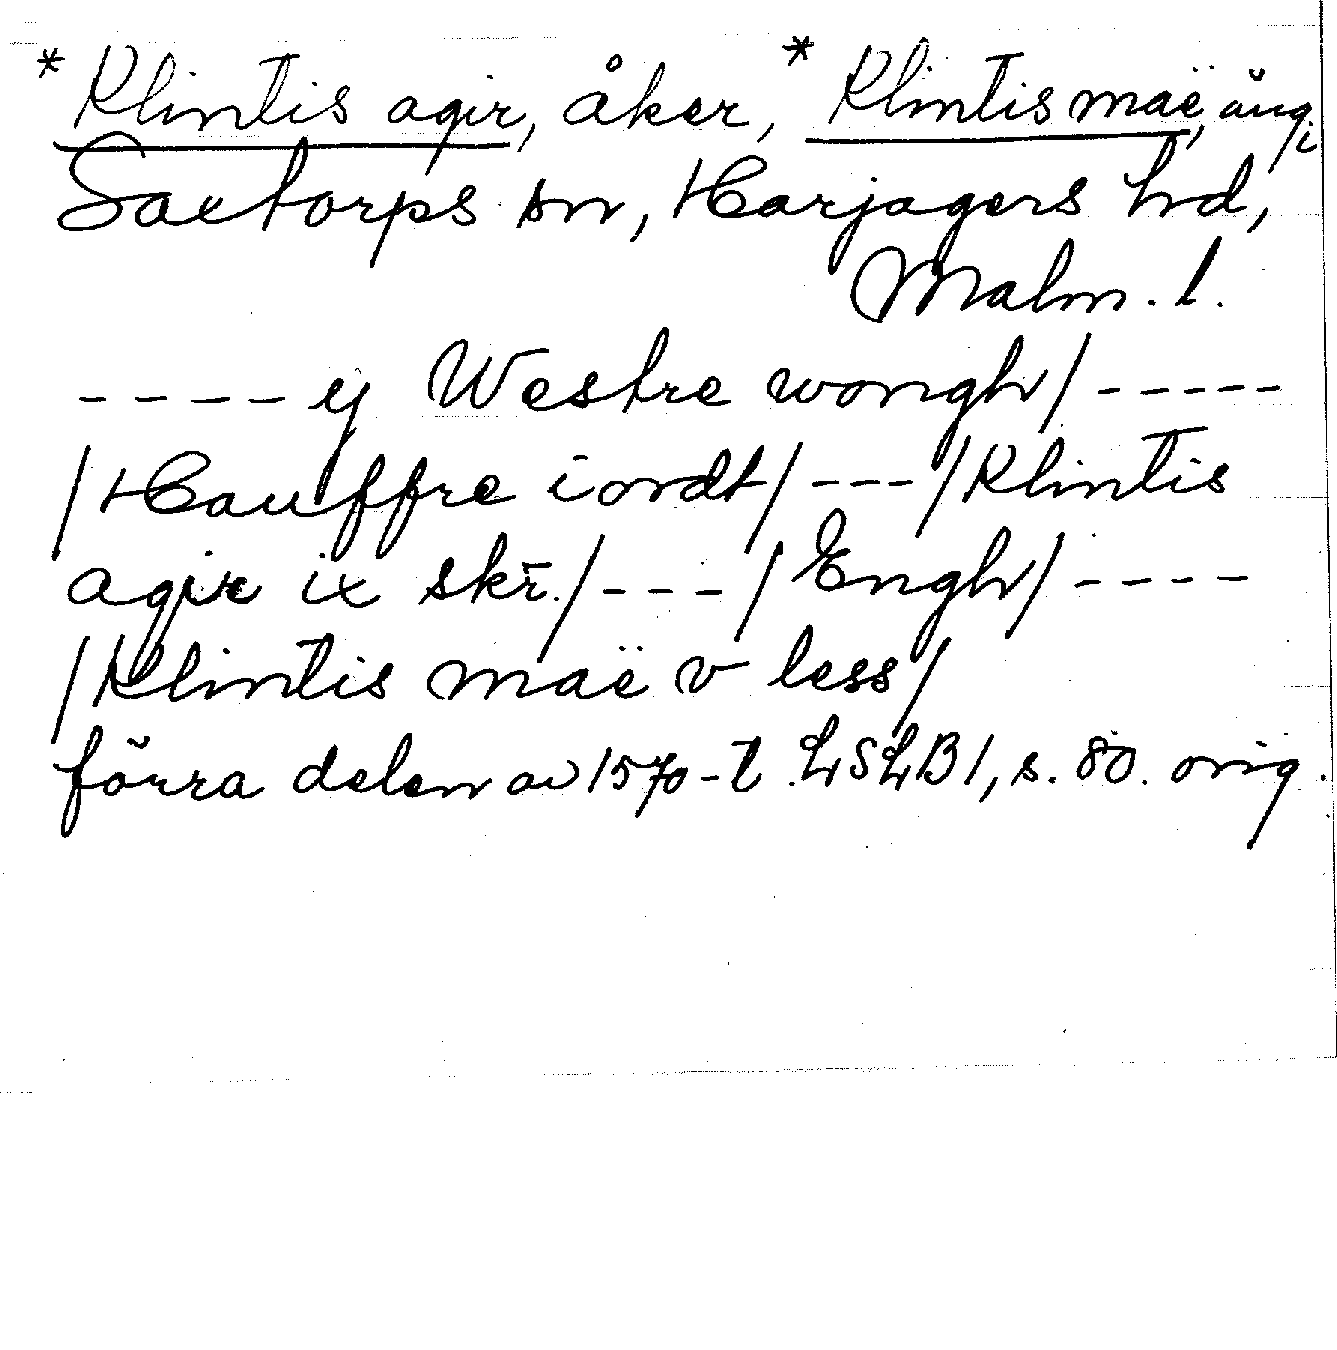 * Klintis agir, åker, * Klintis maë, äng i
Saxtorps sn, Harjagers hd,
Malm. l.
---- ij Westre wongh/-----
/Hauffre iordt/---/Klintis
agir ix skr̄./---/Engh/----
/Klintis maë v less/
förra delen av 1570-t. LSLB1, s. 80. orig.